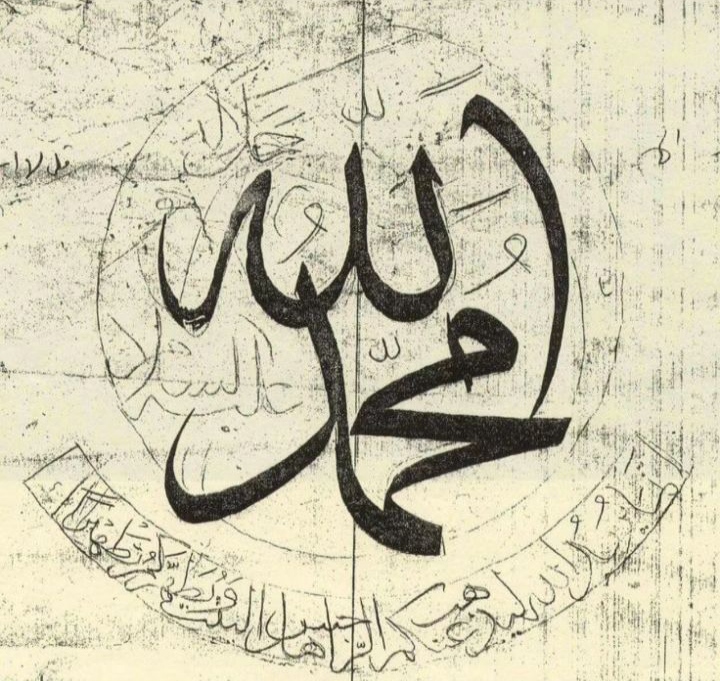 جل جلاله
الله
محمد
عليه السلام
انما يريد الله ليذهب عنكم الرجس اهل البيت ويطهركم تطهيرا